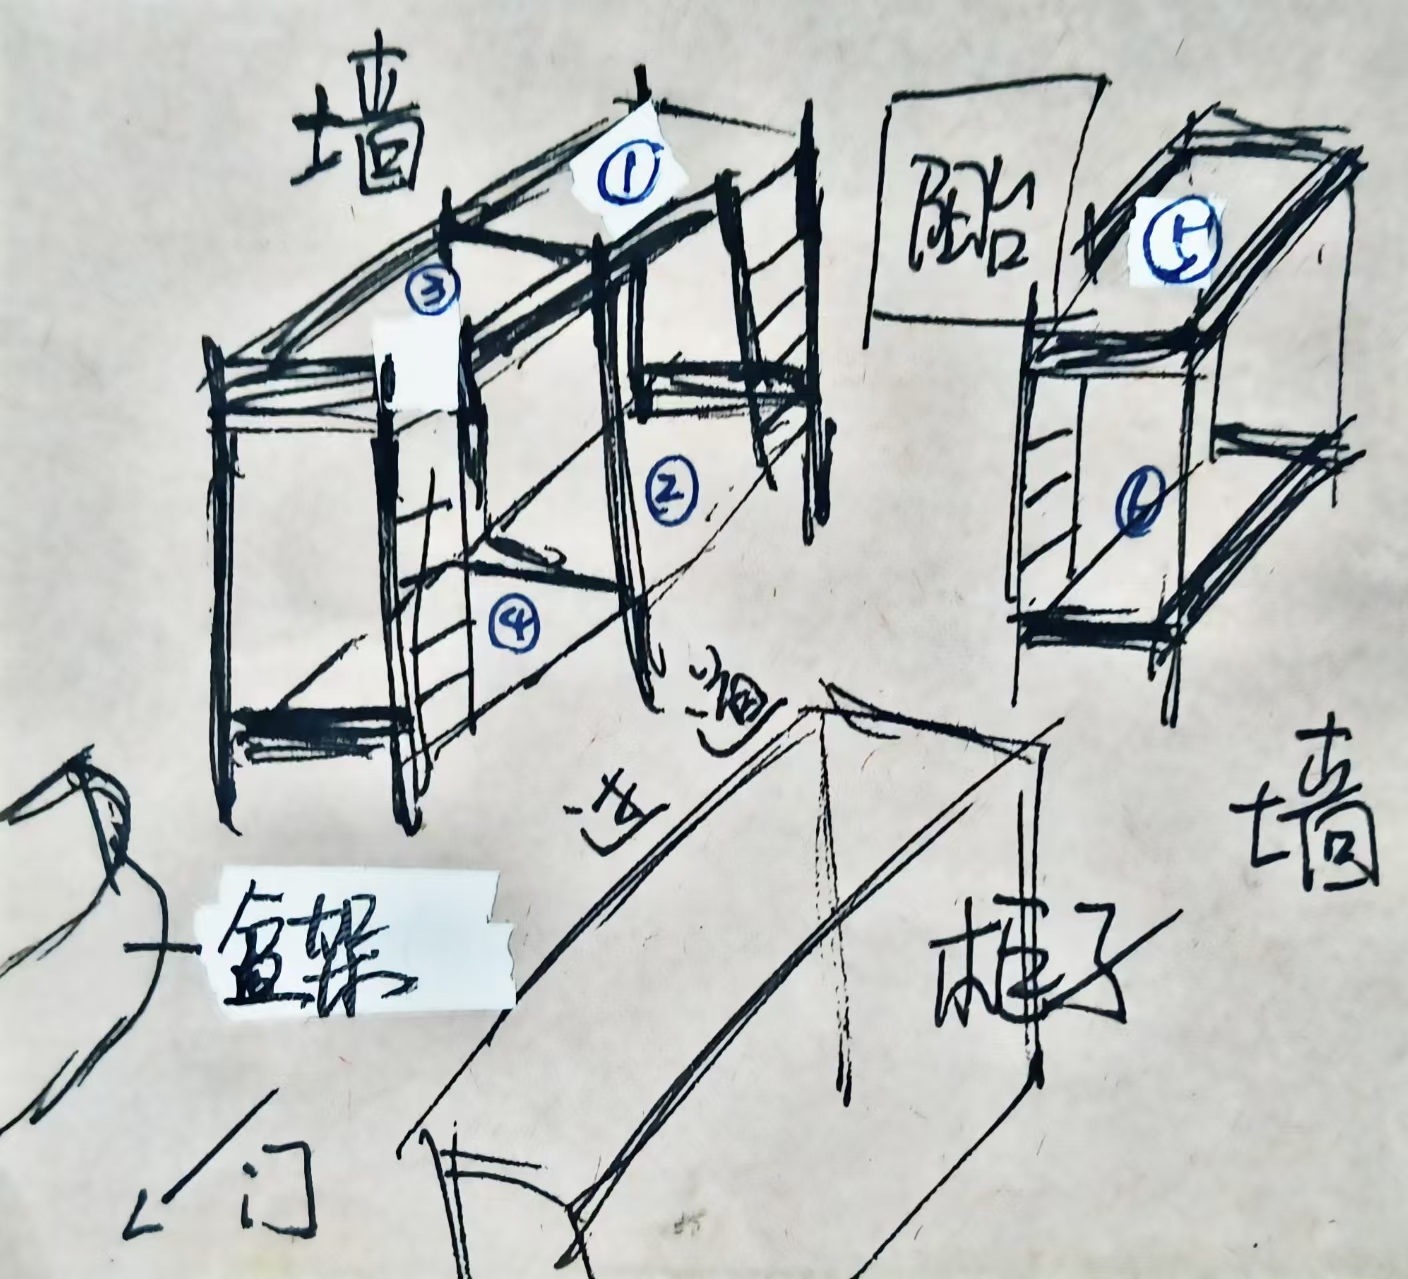 墙
①
阳台
③
②
④
过道
墙
盆架
柜子
门